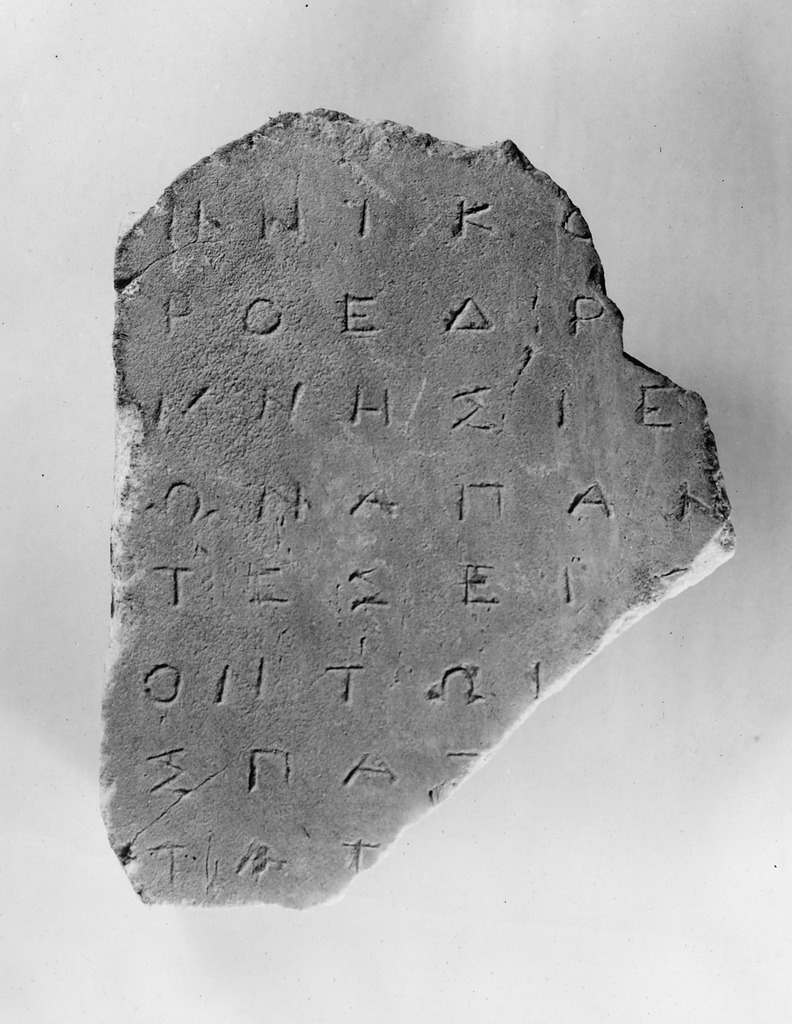 ΠΝΤΚΟ
ΡΟΕΔΡ
ΚΝΗΣΙΕ
ΩΝΑΠΑΝ
ΤΕΣΕΙ
ΟΝΤΩΙ
ΣΠΑΓ
ΤΑΤ